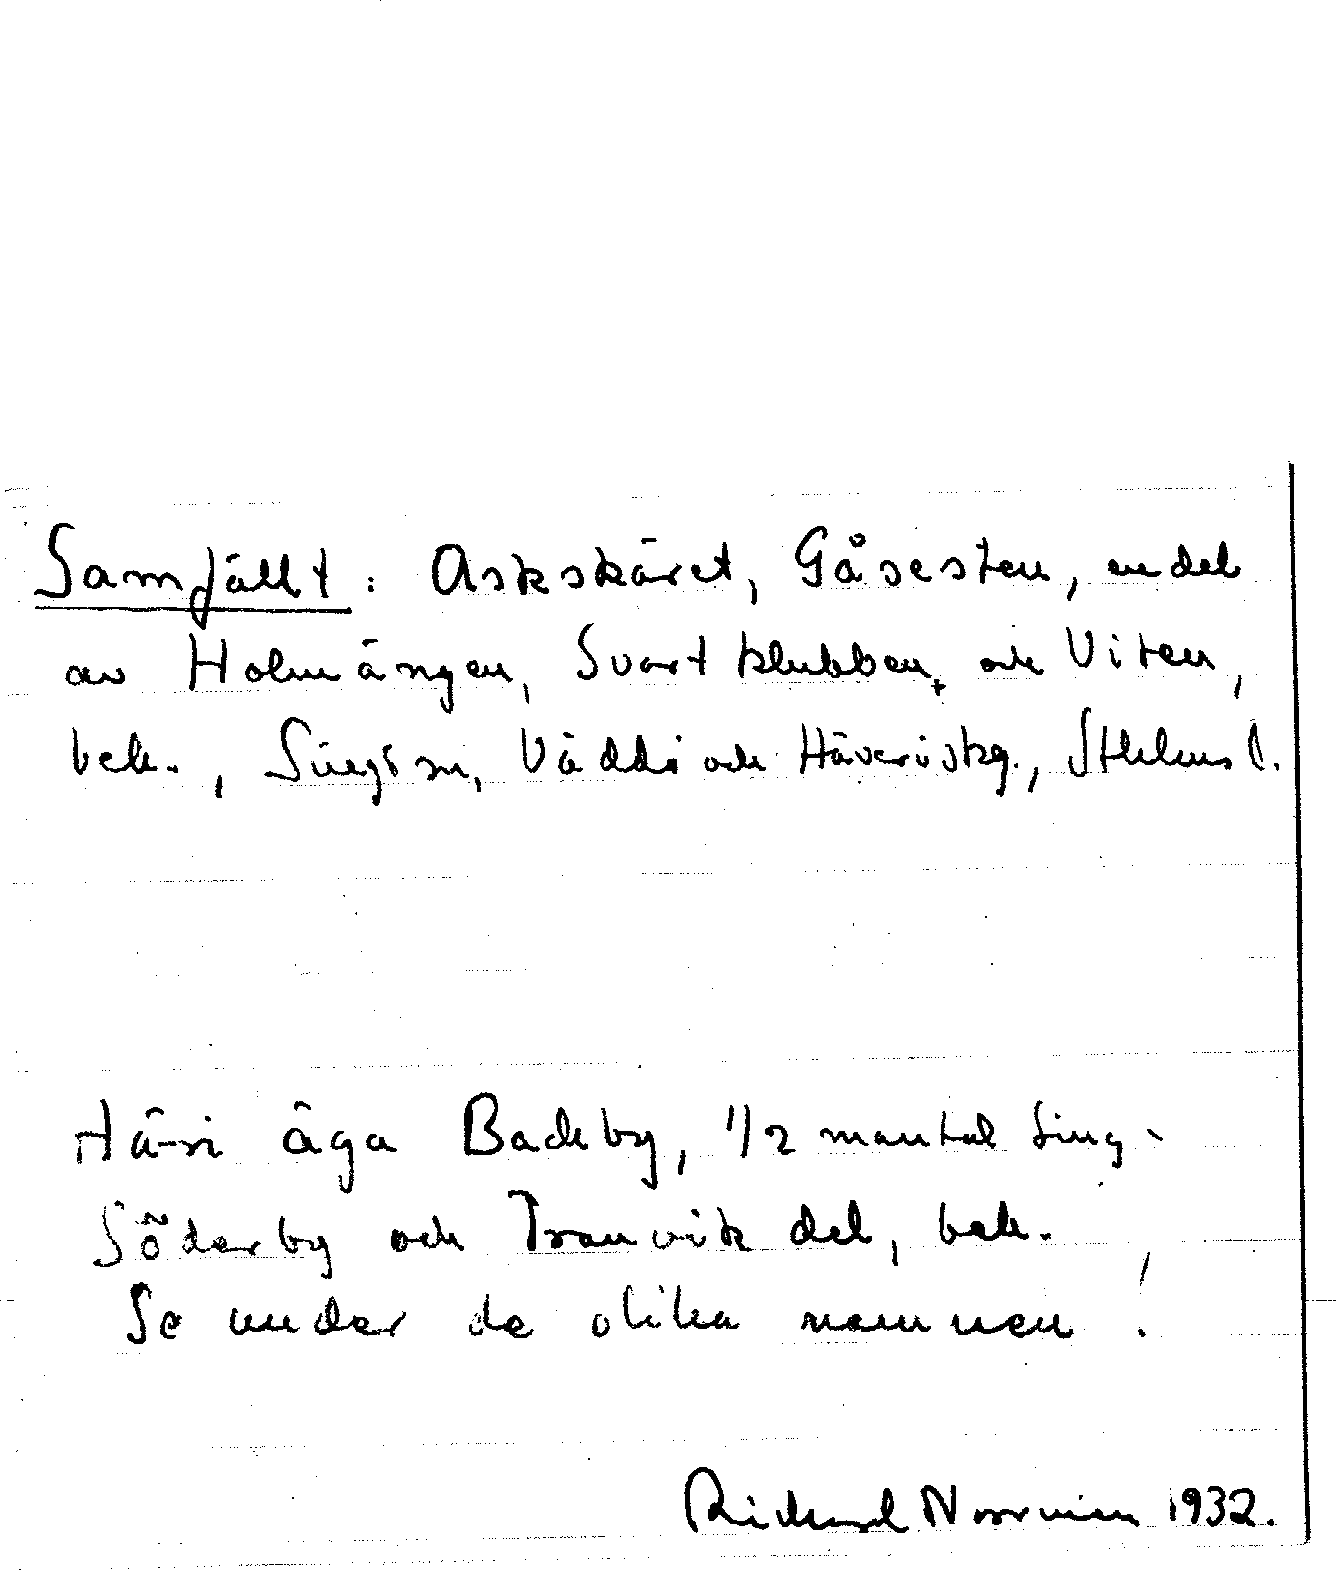 Samfällt: Askskäret, Gåsesten, en del
av Holmängen, Svartklubben, och Viten,
bek., Singö sn, Väddö och Häverö skg., Sthlms l.
Häri äga Backby, 1/2 mantal Sing-
Söderby och Tranvik del, bek.
Se under de olika namnen!
Richard Norrman 1932.